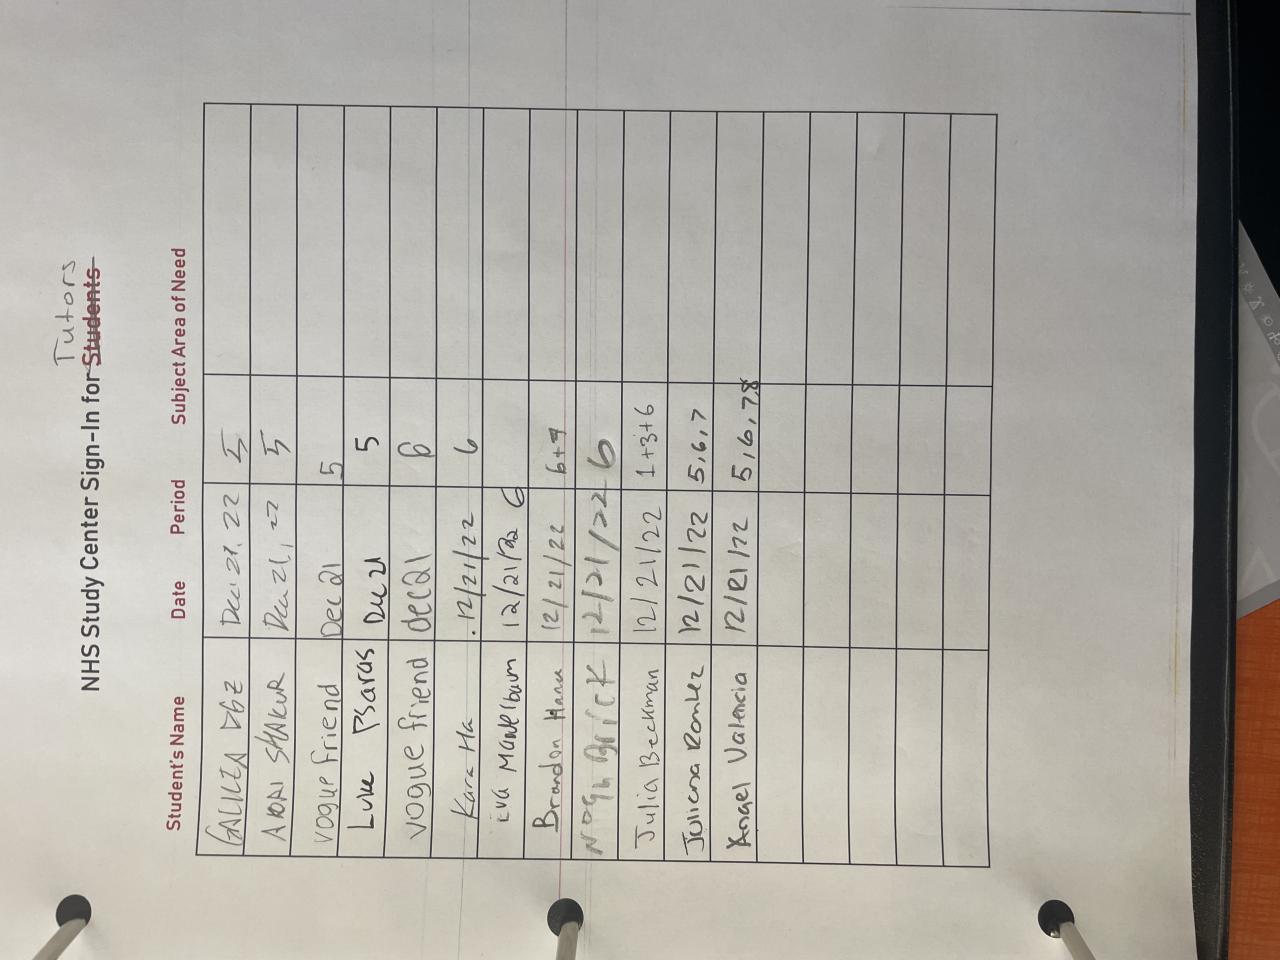 Tutors
NHS Study Center Sign-In for Students
Student's Name Date Period Subject Area of Need
GALILEA DGZ Dec. 21, 22 5
AMARI SHAKUR Dec 21, 22 5
vogue friend Dec 21 5
Luke Psaras Dec 21 5
vogue friend dec 21 6
Kara Ha 12/21/22 6
Eva Mandelbaum 12/21/22 6
Brandon 12/21/22 6+9
Noah Brick 12/21/22 6
Julia Beckman 12/21/22 1+3+6
Juliana 12/21/22 5,6,7
Angel Valencia 12/21/22 5,6,7,8